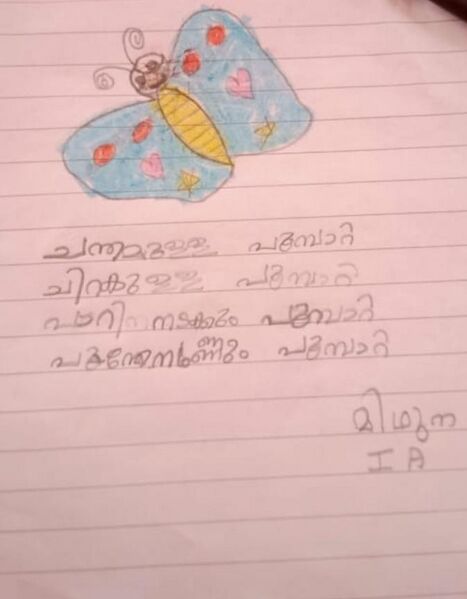 ചന്തമുള്ള പൂമ്പാറ്റ
ചിറകുള്ള പൂമ്പാറ്റ
പാറിനടക്കും പൂമ്പാറ്റ
പൂന്തേനുണ്ണും പൂമ്പാറ്റ
മിഥുന
I A